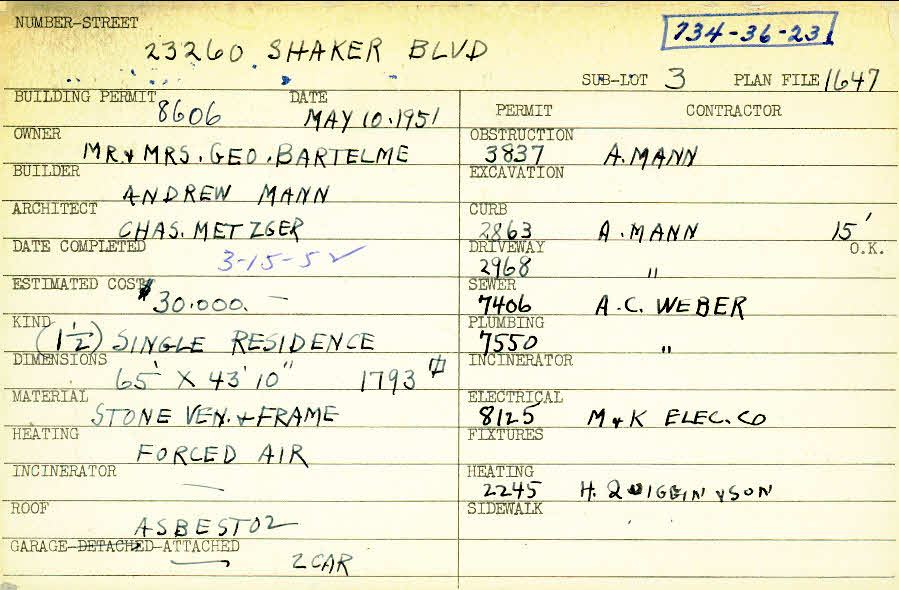 NUMBER-STREET
23260 SHAKER BLVD
734-36-23
SUB-LOT 3 PLAN FILE 1647
BUILDING PERMIT 8606 DATE MAY 10, 1951
OWNER MR & MRS. GEO. BARTELME
BUILDER ANDREW MANN
ARCHITECT CHAS. METZGER
DATE COMPLETED 3-15-52
ESTIMATED COST $30,000. —
KIND (1 1/2) SINGLE RESIDENCE
DIMENSIONS 65' X 43' 10" 1793 #
MATERIAL STONE VEN. & FRAME
HEATING FORCED AIR
INCINERATOR —
ROOF ASBESTOZ
GARAGE-DETACHED-ATTACHED 2 CAR
PERMIT CONTRACTOR
OBSTRUCTION 3837 A. MANN
EXCAVATION
CURB 2863 A. MANN 15' O.K.
DRIVEWAY 2968 "
SEWER 7406 A.C. WEBER
PLUMBING 7550 "
INCINERATOR
ELECTRICAL 8125 M & K ELEC. CO
FIXTURES
HEATING 2245 H. QUIGGIN & SON
SIDEWALK